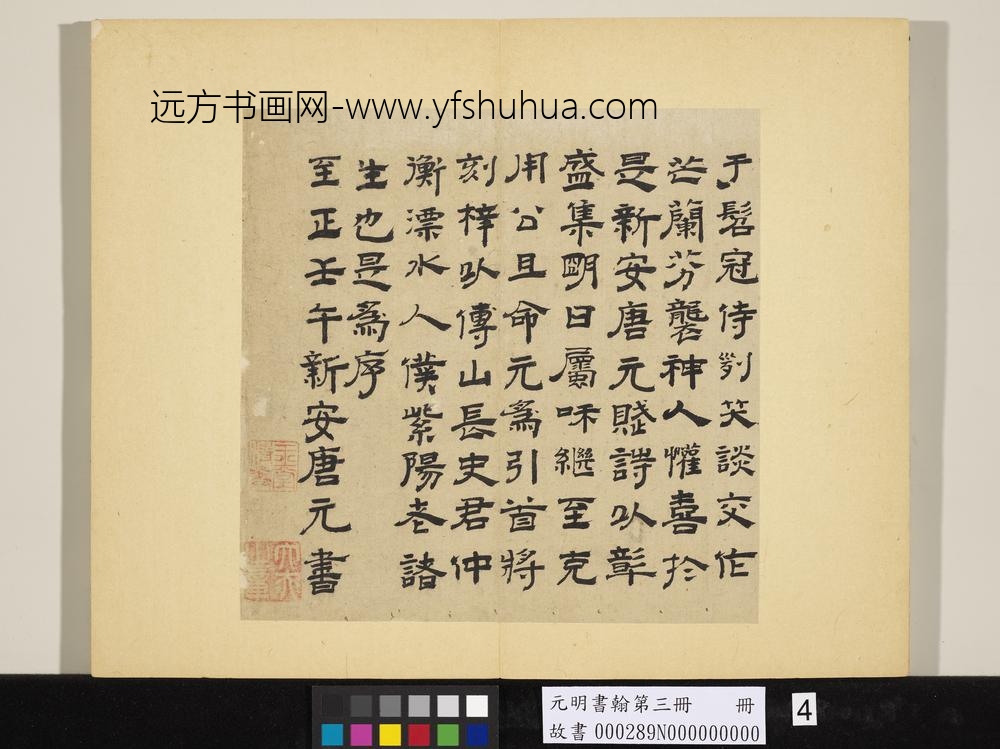 远方书画网-www.yfshuhua.com
于髫冠侍列笑談交作
芒蘭芬襲神人懽喜於
是新安唐元賦詩以彰
盛集明日屬和繼至克
用公且命元為引首將
刻梓以傳山長史君仲
衡漂水人僕紫陽老諸
生也是為序
至正壬午新安唐元書
元明書翰第三冊 冊
故書 000289N000000000
4